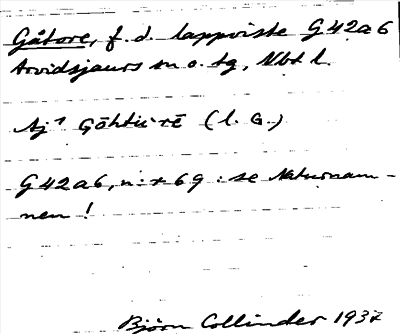 Gåtore, f.d. lappviste G42a6
Arvidsjaurs sn o. tg, Nbt l.
Aj¹ Gåhtīe rē (l. G.)
G42a6, n:r 69 : se Naturnam-
nen !
Björn Collinder 1937